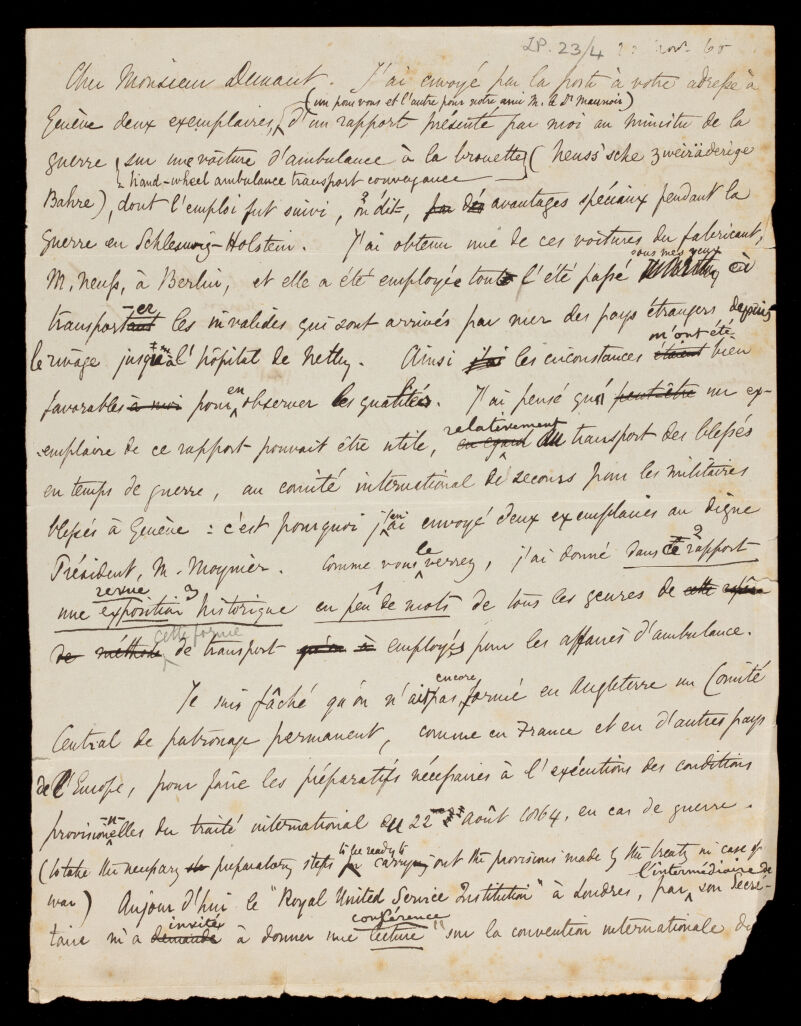 LP. 23/4 22 Nov. 65
Cher Monsieur Dunant. J'ai envoyé par la poste à votre adresse à
(un pour vous et l'autre pour notre ami M. le Dr Maunoir)
Genève deux exemplaires, d'un rapport présenté par moi au ministre de la
guerre, sur une voiture d'ambulance à la brouette (Neuss'sche zweiräderige
= hand-wheel ambulance transport conveyance
Bahre), dont l'emploi fut suivi, on dit, par des avantages spéciaux pendant la
guerre en Schleswig-Holstein. J'ai obtenu une de ces voitures du fabricant,
sous mes yeux
M. Neuss, à Berlin, et elle a été employée tout l'été passé à
transportant er les invalides qui sont arrivés par mer des pays étrangers depuis
m'ont été
le rivage jusqu'à l'hôpital de Netley. Ainsi j'ai les circonstances étaient bien
en
favorables à moi pour observer les qualités. J'ai pensé qu' peut-être un ex-
relativement
emplaire de ce rapport pouvait être utile, en égard au transport des blessés
en temps de guerre, au comité international de secours pour les militaires
en
blessés à Genève : c'est pourquoi j'ai envoyé deux exemplaires au digne
le
Président, M. Moynier. Comme vous verrez, j'ai donné dans ce rapport
revue
une exposition historique en peu de mots de tous les genres de cette
cette forme
de méthode de transport employés pour les affaires d'ambulance.
encore
Je suis fâché qu'on n'ait pas formé en Angleterre un Comité
Central de patronage permanent, comme en France et en d'autres pays
de l'Europe, pour faire les préparatifs nécessaires à l'exécutions des conditions
-n-
provisionelles du traité international du 22 Août 1864, en cas de guerre.
to be ready to
(to take the necessary preparatory steps for carrying out the provisions made by the treaty in case of
l'intermédiaire de
war) Aujour d'hui le "Royal United Service Institution" à Londres, par son Secré-
invité conférence
taire m'a demandé à donner une lecture" sur la convention internationale du